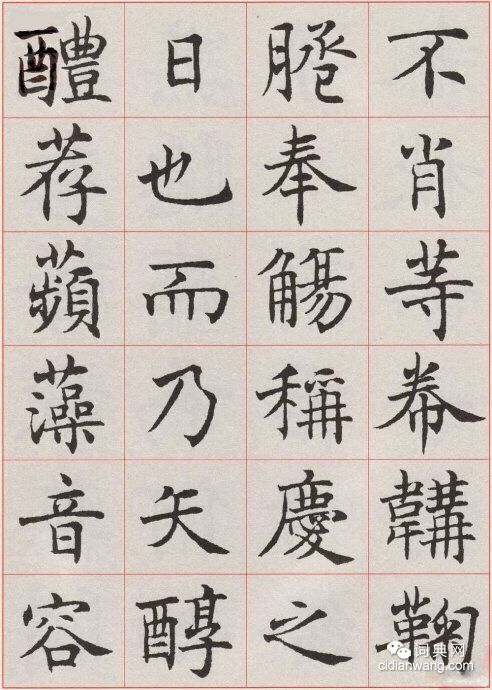 不肖等帣韝鞠
奉觴稱慶之
日也而乃矢醇
醴荐蘋藻音容
词典网
cidianwang.com